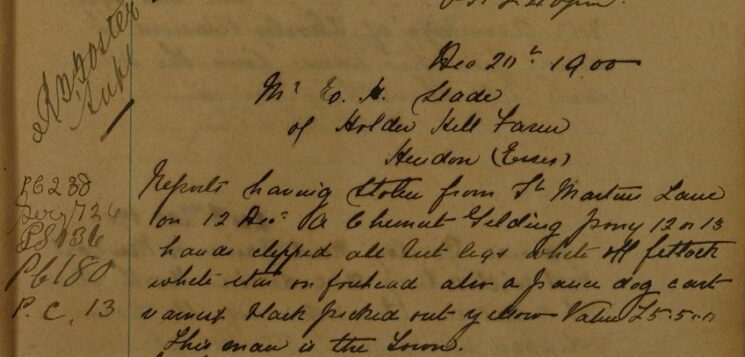 Dec 20th 1900
Mr
of Holder Hill Farm
Hendon (Essex)
Reports having Stolen from St Martins Lane
on 12 Decr A Chesnut Gelding pony 12 or 13
hands clipped all but legs white off fetlock
white star on forehead also a dog cart
varnish black picked out yellow Value £5.5.0
This man is the
R. D. Foster
Supt
PC 238
Serg 726
PS 136
PC 180
P.C. 13